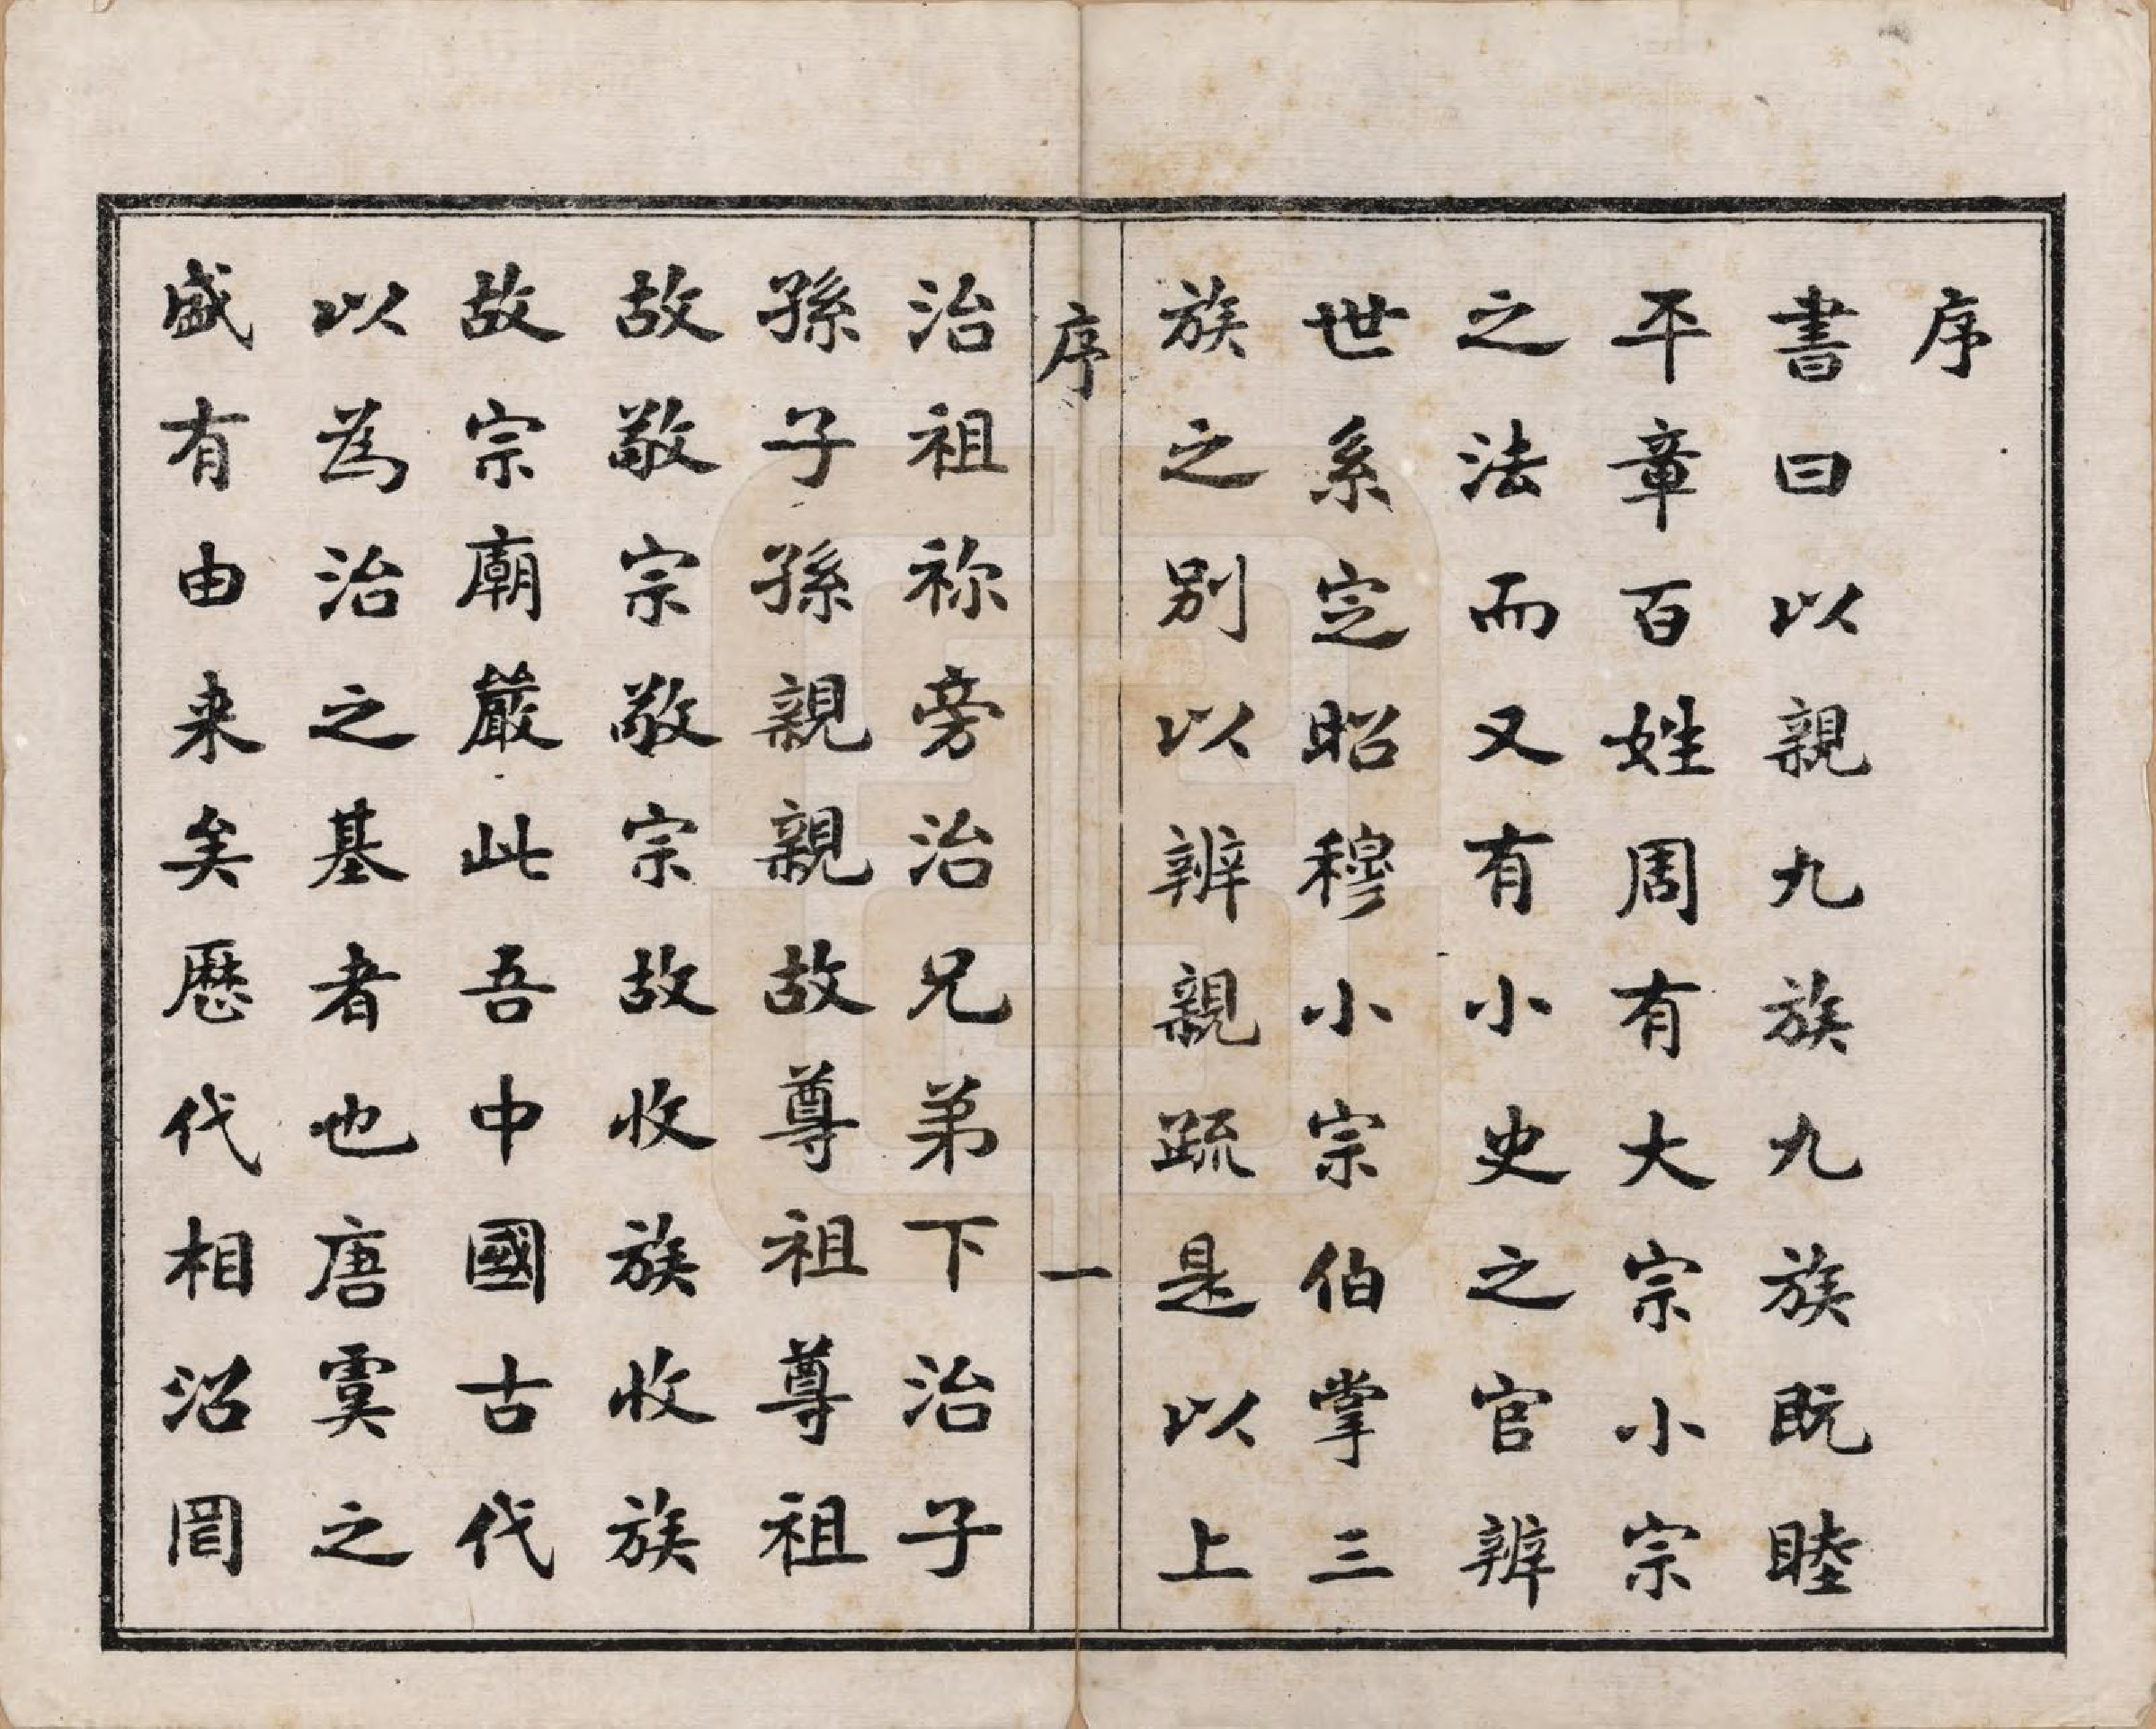 序
書曰以親九族九族既睦
平章百姓周有大宗小宗
之法而又有小史之官辨
世系定昭穆小宗伯掌三
族之別以辨親疏是以上
序 一
治祖祢旁治兄弟下治子
孫子孫親親故尊祖尊祖
故敬宗敬宗故收族收族
故宗廟嚴此吾中國古代
以為治之基者也唐虞之
盛有由来矣歷代相沿罔